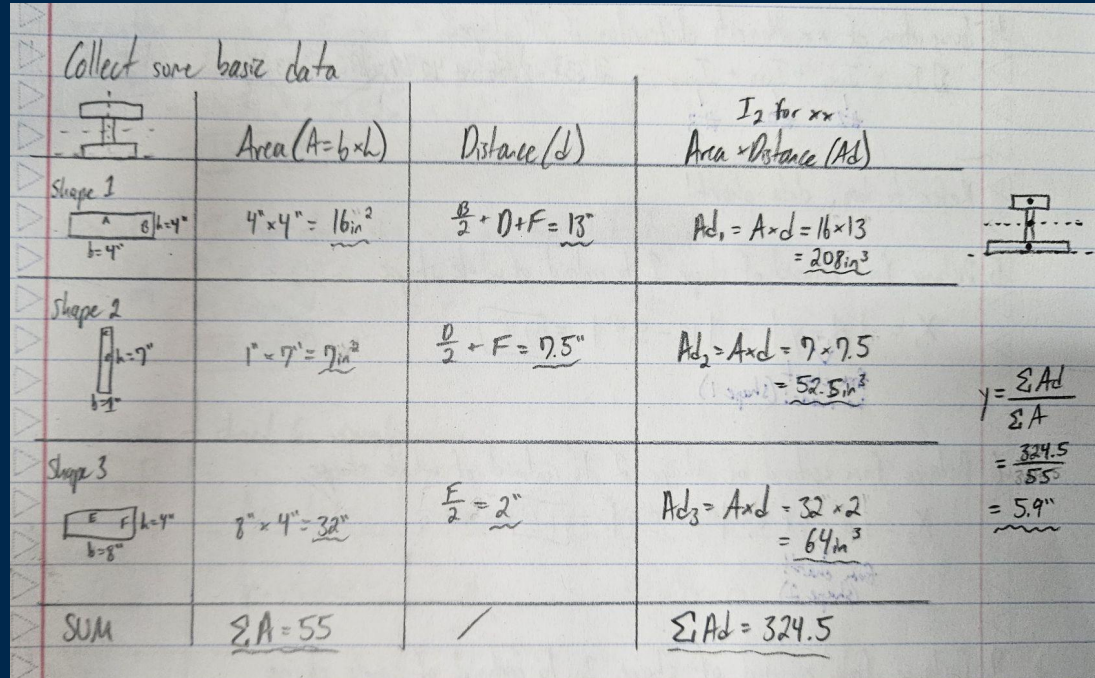 Collect some basic data
Area (A=b×h)
Distance (d)
I₂ for xx
Area × Distance (Ad)
Shape 1
A B h=4"
b=4"
4"×4" = 16in²
B/2 + D + F = 13"
Ad₁ = A×d = 16×13
= 208in³
Shape 2
h=7"
b=1"
1" × 7" = 7in²
D/2 + F = 7.5"
Ad₂ = A×d = 7×7.5
= 52.5in³
Shape 3
E F h=4"
b=8"
8" × 4" = 32"
F/2 = 2"
Ad₃ = A×d = 32×2
= 64in³
SUM
ΣA = 55
/
ΣAd = 324.5
y = ΣAd/ΣA
= 324.5/55
= 5.9"